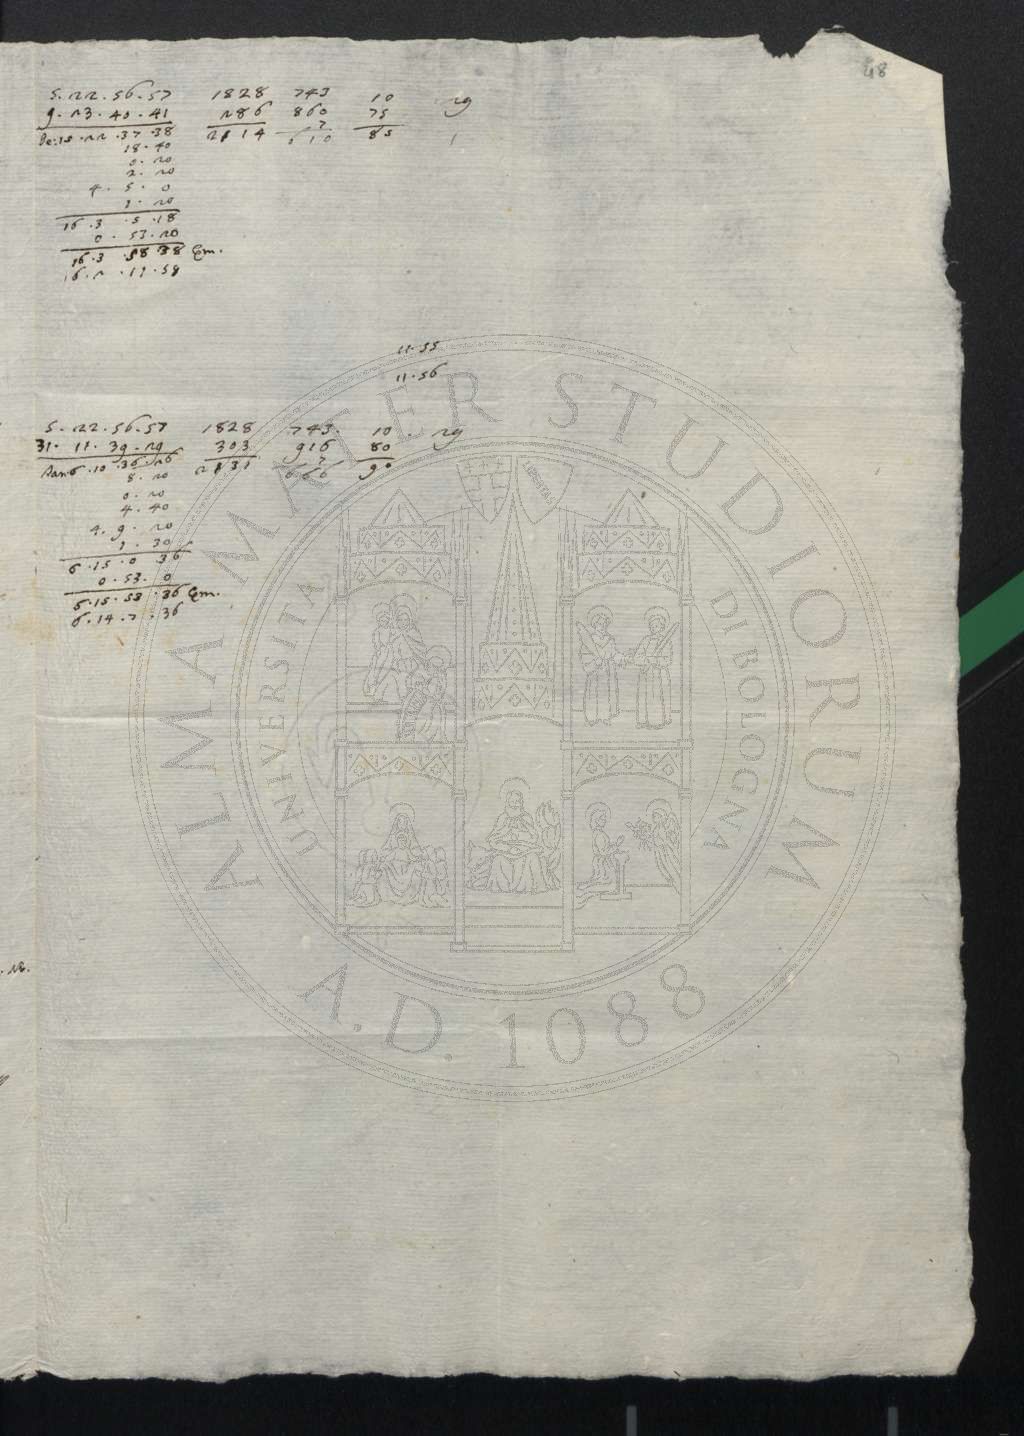 48
5. 22. 56. 57 1828 743 10 29
9. 23. 40. 41 286 860 75
De. 15. 22. 37. 38 2114 610 85 1
18. 40
0. 20
2. 20
4. 5. 0
1. 20
16. 3. 5. 18
0. 53. 20
16. 3. 58 38 Em.
16. 2. 11. 58
11. 55
11. 56
5. 22. 56. 57 1828 743. 10. 29
31. 11. 39. 29 303 916 80
6. 10. 36. 26 2131 666 90
8. 20
0. 20
4. 40
4. 9. 20
1. 30
6. 15. 0 36
0. 53. 0
6. 15. 53. 36 Em.
6. 14. 7. 36
. 12.
ALMA MATER STUDIORUM
UNIVERSITÀ DI BOLOGNA
LIBERTAS
A.D. 1088